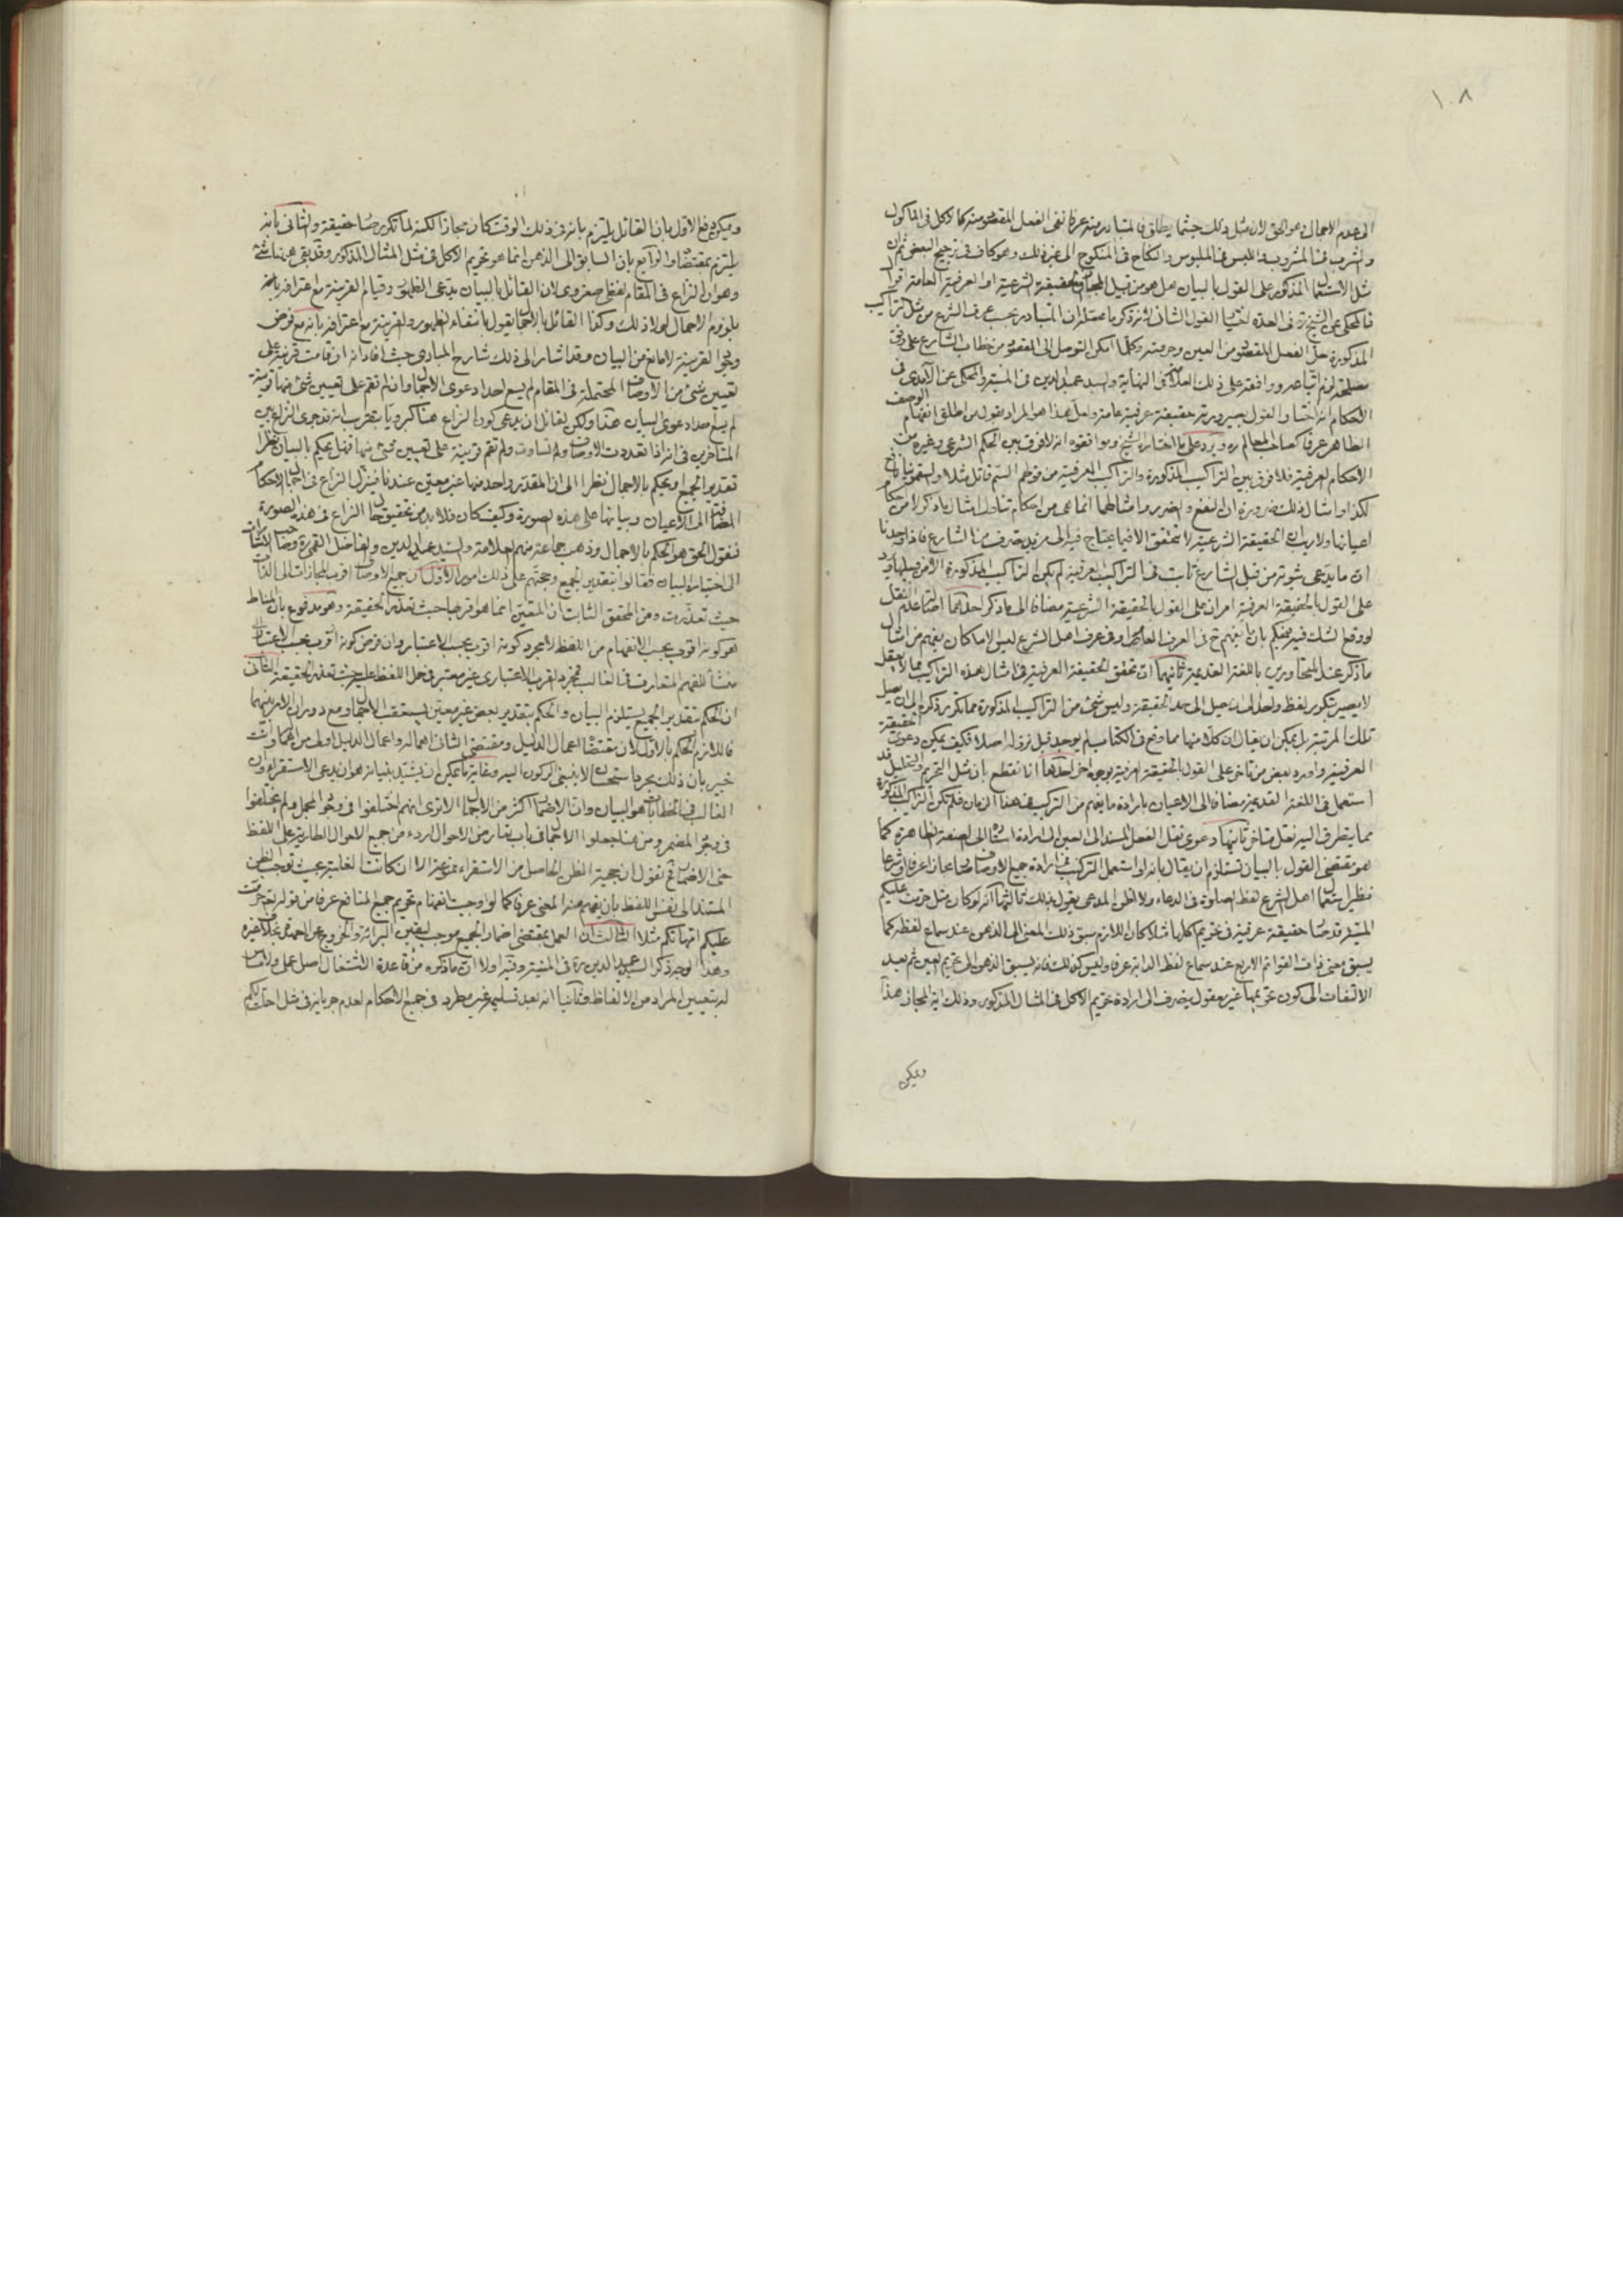 ١٠٨
الى عدم الاجمال وهو الحق لان مثل ذلك حيثما يطلق فالمتبادر منه عرفا نفى الفعل المقصود منه كالاكل فى المأكول
والشرب فى المشروب واللبس فى الملبوس والنكاح فى المنكوح الى غير ذلك وهو كاف فى ترجيح البعض ثم ان
مثل الاستعمال المذكور على القول بالبيان هل هو من قبيل المجاز او الحقيقة الشرعية او العرفية العامة اقوال
فالمحكى عن الشيخ ره فى العدة اختيار القول الثانى لانه ذكر ما محصله ان المتبادر بحسب عرف الشرع من مثل التراكيب
المذكورة هو الفعل المقصود من العين وحرمته وكلما امكن التوصل الى المقصود من خطاب الشارع على وفق
مصطلحه لزم اتباعه ووافقه على ذلك العلامة فى النهاية والسيد عميد الدين فى المنية والمحكى عن الآمدى فى
الاحكام انه اختار القول بصيرورته حقيقة عرفية عامة ولعل هذا هو المراد بقول من اطلق انفهام الوصف
الظاهر عرفا كصاحب المعالم ره ويرد على ما اختاره الشيخ وموافقوه انه لا فرق بين الحكم الشرعى وغيره من
الاحكام العرفية فلا فرق بين التراكيب المذكورة والتراكيب العرفية من قولهم السم قاتل مثلا والسقمونيا نافع
لكذا وامثال ذلك ضرورة ان النفع والضرر وامثالهما انما هى من احكام تناول امثال ما ذكر لا من احكام
اعيانها ولا ريب ان الحقيقة الشرعية لا تتحقق الا فيما يحتاج فيه الى مزيد تصرف من الشارع فاذا وجدنا
ان ما يدعى ثبوته من قبل الشارع ثابت فى التراكيب العرفية لم يكن التراكيب المذكورة الا من قبيلها ويرد
على القول بالحقيقة العرفية امران على القول بالحقيقة الشرعية مضافا الى ما ذكر احدهما اصالة عدم النقل
لو وقع الشك فيه فيحكم بان ما يفهم ح فى العرف العام او فى عرف اهل الشرع ليس الا ما كان يفهم من امثال
ما ذكر عند المتحاورين باللغة القديمة ثانيهما ان تحقق الحقيقة العرفية فى امثال هذه التراكيب مما لا يعقل
لا يصير بتكرير لفظ واحد الى ان يصل الى حد الحقيقة وليس شئ من التراكيب المذكورة مما تكرر ذكره الى ان يصل
تلك المرتبة بل يمكن ان يقال ان كلا منها مما وقع فى الكتاب لم يوجد قبل نزوله اصلا فكيف يمكن دعوى الحقيقة
العرفية واورد بعض من تأخر على القول بالحقيقة العرفية بوجوه اخر احدها انا نقطع بان مثل التحريم والتحليل قد
استعمل فى اللغة القديمة مضافا الى الاعيان بارادة ما يفهم من التركيب فى هذا الزمان فلم يكن التراكيب المذكورة
مما يتطرق اليه نقل متأخر ثانيها دعوى نقل الفعل المسند الى العين الى ارادة اسناده الى الصفة الظاهرة كما
هو مقتضى القول بالبيان تستلزم ان يقال بانه لو استعمل التركيب فى ارادة جميع الاوصاف كان مجازا عرفا وشرعا
نظير استعمال اهل الشرع لفظ الصلوة فى الدعاء ولا اظن المدعى يقول بذلك ثالثها انه لو كان مثل حرمت عليكم
الميتة قد صار حقيقة عرفية فى تحريم اكلها مثلا لكان اللازم سبق ذلك المعنى الى الذهن عند سماع لفظه كما
يسبق معنى ذات القوائم الاربع عند سماع لفظ الدابة عرفا وليس كذلك فانه يسبق الذهن الى تحريم العين ثم بعد
الالتفات الى كون تحريمها غير معقول ينصرف الى ارادة تحريم الاكل فى المثال المذكور وذلك اية المجاز هذا
ويمكن
ويمكن دفع الاول بان القائل يلتزم بانه فى ذلك الوقت كان مجازا لكنه لما تكرر صار حقيقة والثانى بانه
يلتزم بمقتضاه والرابع بان السابق الى الذهن انما هو تحريم الاكل فى مثل المثال المذكور وقد بقى هنا شئ
وهو ان النزاع فى المقام لفظى صغروى لان القائل بالبيان يدعى الظهور وقيام القرينة مع اعترافه بانه
يلزم الاجمال لولا ذلك وكذا القائل بالاجمال يقول بانتفاء الظهور والقرينة مع اعترافه بانه مع فرض
وجود القرينة لا مانع من البيان وقد اشار الى ذلك شارح المبادى حيث افاد انه ان قامت قرينة على
تعيين شئ من الاوصاف المحتملة فى المقام لم يسع احدا دعوى الاجمال وان لم تقم على تعيين شئ منها قرينة
لم يسع احدا دعوى البيان هذا ولكن لقائل ان يدعى كون النزاع هنا كبرويا بتقريب انه قد جرى النزاع بين
المتأخرين فى انه اذا تعددت الاوصاف وتساوت ولم تقم قرينة على تعيين شئ منها فهل يحكم بالبيان نظرا
تقدير الجميع او يحكم بالاجمال نظرا الى ان المقدر واحد منها غير معين عندنا فينزل النزاع فى اجمال الاحكام
المضافة الى الاعيان وبيانها على هذه الصورة وكيف كان فلا بد من تحقيق حال النزاع فى هذه الصورة
فنقول الحق هو الحكم بالاجمال وذهب جماعة منهم العلامة والسيد عميد الدين والفاضل القمى ره وصاحب الاشارات
الى اختيار البيان فقالوا بتقدير الجميع وحجتهم على ذلك امور الاول ان جميع الاوصاف اقرب المجازات الى الذات
حيث تعذرت ومن المحقق الثابت ان المتعين انما هو اقربها حيث تعذر الحقيقة وهو مدفوع بان المناط
هو كونه اقرب بحسب الانفهام من اللفظ لا مجرد كونه اقرب بحسب الاعتبار وان فرض كونه اقرب بحسب الاعتبار
منشأ للفهم المتعارف فى الغالب فمجرد القرب الاعتبارى غير معتبر فى حمل اللفظ عليه حيث تعذر الحقيقة الثانى
ان الحكم بتقدير الجميع يستلزم البيان والحكم بتقدير بعض غير معين يستعقب الاجمال ومع دوران الامر بينهما
فاللازم الحكم بالاول لان مقتضاه اعمال الدليل ومقتضى الثانى اهماله واعمال الدليل اولى من اهماله وانت
خبير بان ذلك مجرد استحسان لا ينبغى الركون اليه وغاية ما يمكن ان يشيد بنيانه هو ان يدعى الاستقراء وان
الغالب فى الخطابات هو البيان وان الاضمار اكثر من الاجمال الا ترى انهم اختلفوا فى وجود المجمل ولم يختلفوا
فى وجود المضمر ومن هنا جعلوا الاجمال فى باب تعارض الاحوال اردء من جميع الاحوال الطارية على اللفظ
حتى الاضمار وح نقول ان حجية الظن الحاصل من الاستقراء ممنوعة الا ان كانت الغلبة بحيث توجب الظن
المستند الى نفس اللفظ بان يفهم منه المعنى عرفا كما لو اوجبت انفهام تحريم جميع المنافع عرفا من قوله تع حرمت
عليكم امهاتكم مثلا الثالث ان العمل بمقتضى اضمار الجميع موجب ليقين البرائة والخروج عن العهدة بخلاف غيره
وهذا الوجه ذكره السيد عميد الدين ره فى المنية وفيه اولا ان ما ذكره من قاعدة الاشتغال اصل عملى ولا مساس
له بتعيين المراد من الالفاظ وثانيا انه بعد تسليمه غير مطرد فى جميع الاحكام لعدم جريانه فى مثل احلت لكم